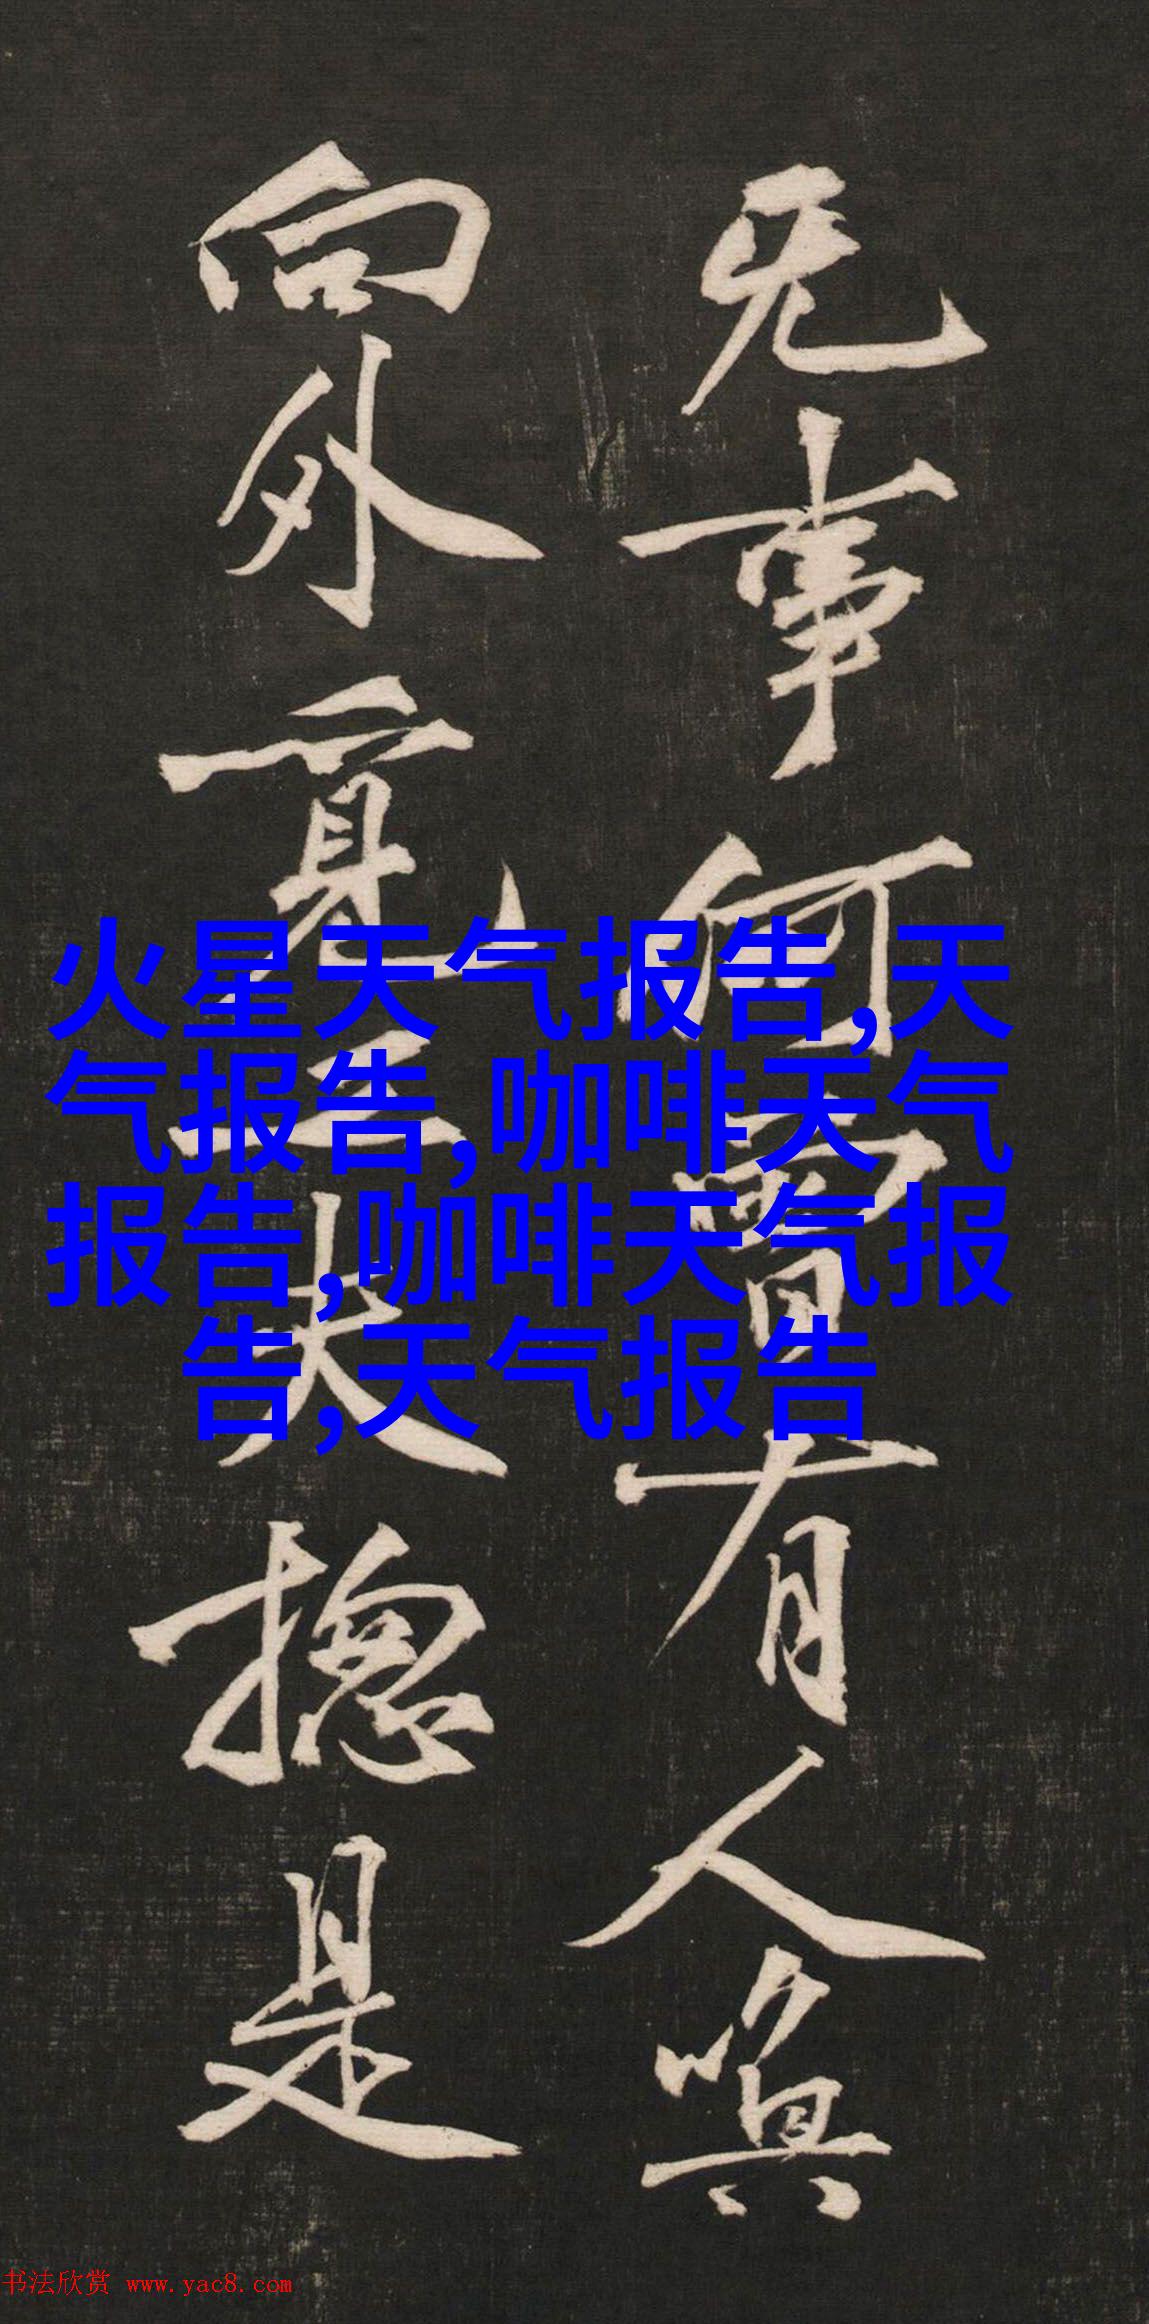 无事何曾有人唤
向外覔工夫揔是
火星天气报告,天
气报告,咖啡天气
报告,咖啡天气报
告,天气报告
书法欣赏 www.yac8.com